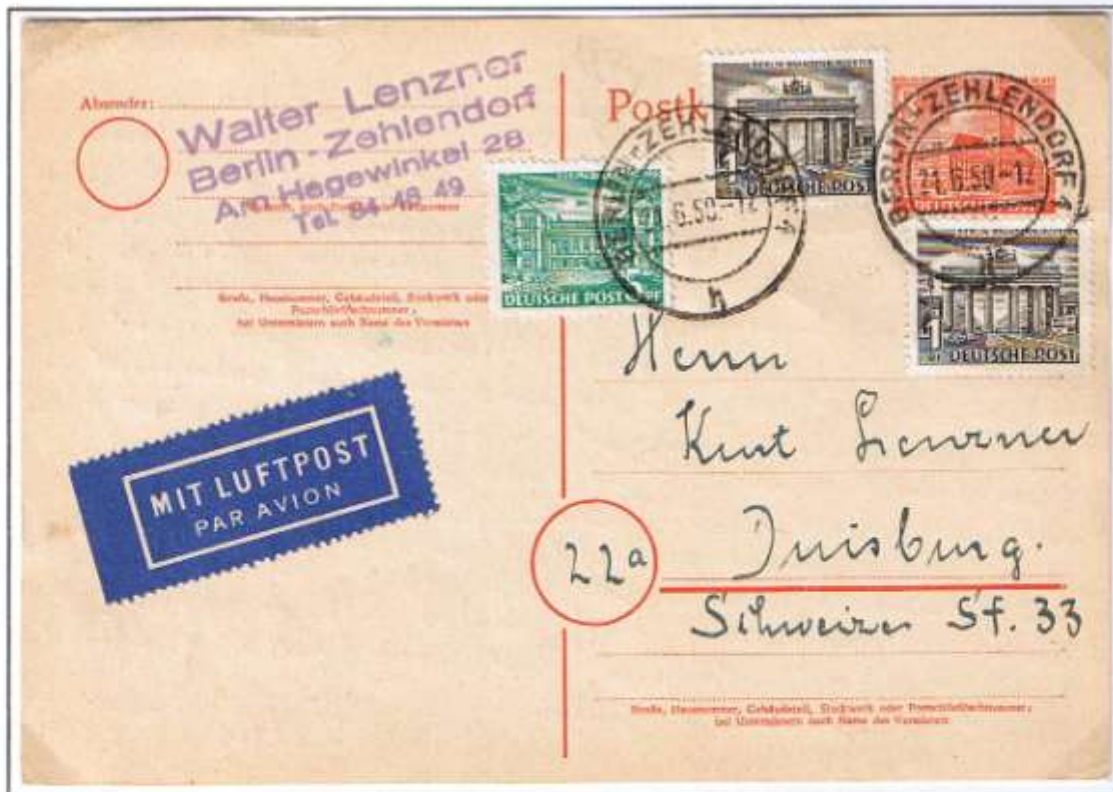 Absender:
Walter Lenzner
Berlin - Zehlendorf
Am Hegewinkel 28
Tel. 84 48 49
Straße, Hausnummer, Gebäudeteil, Stockwerk oder Postschließfachnummer;
bei Untermietern auch Name des Vermieters
MIT LUFTPOST
PAR AVION
Postk
DEUTSCHE POST
BERLIN-ZEHLENDORF 4
.6.50.-12
h
1 DEUTSCHE POST
BERLIN-ZEHLENDORF 1
21.6.50.-12
1 DEUTSCHE POST
Herrn
Kurt Lenzner
22a
Duisburg.
Schweizer St. 33
Straße, Hausnummer, Gebäudeteil, Stockwerk oder Postschließfachnummer;
bei Untermietern auch Name des Vermieters